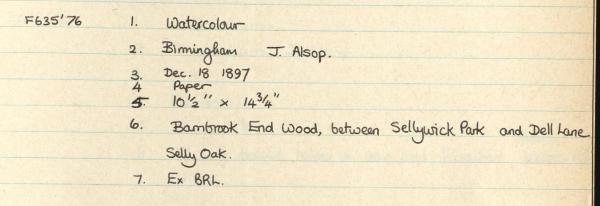 F635'76 1. Watercolour
2. Birmingham J. Alsop.
3. Dec. 18 1897
4 Paper
5. 10 1/2" x 14 3/4"
6. Bambrook End Wood, between Sellywick Park and Dell Lane
Selly Oak.
7. Ex BRL.